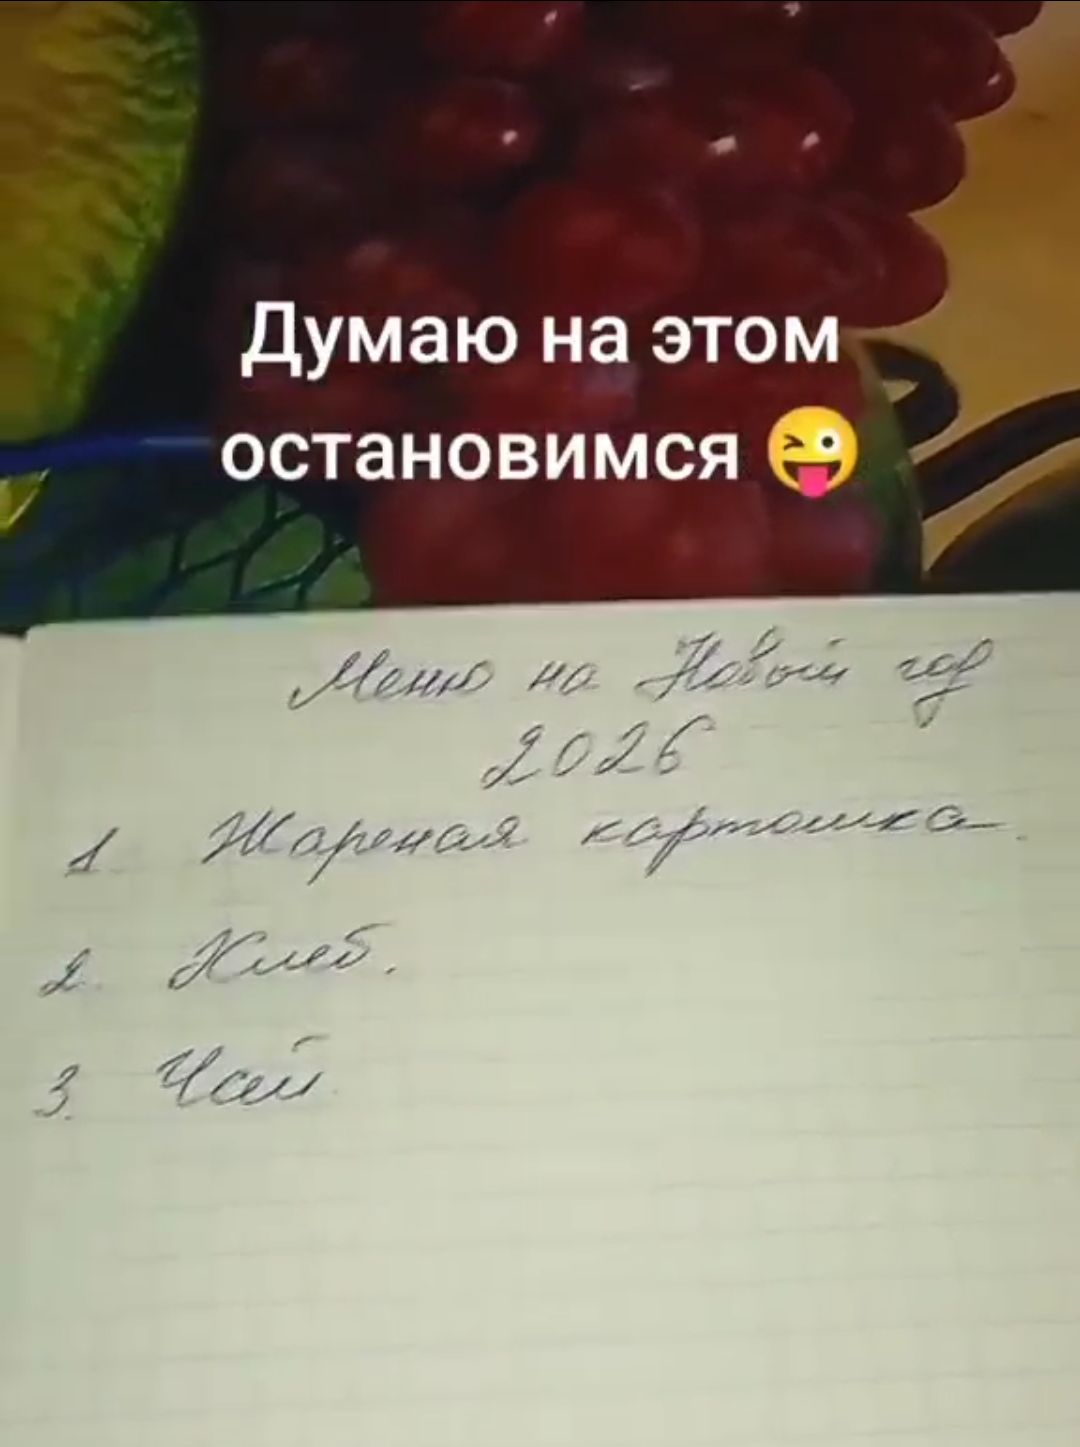 Думаю на этом
остановимся 😜
Меню на Новый год
2026
1. Жареная картошка.
2. Хлеб.
3. Чай.